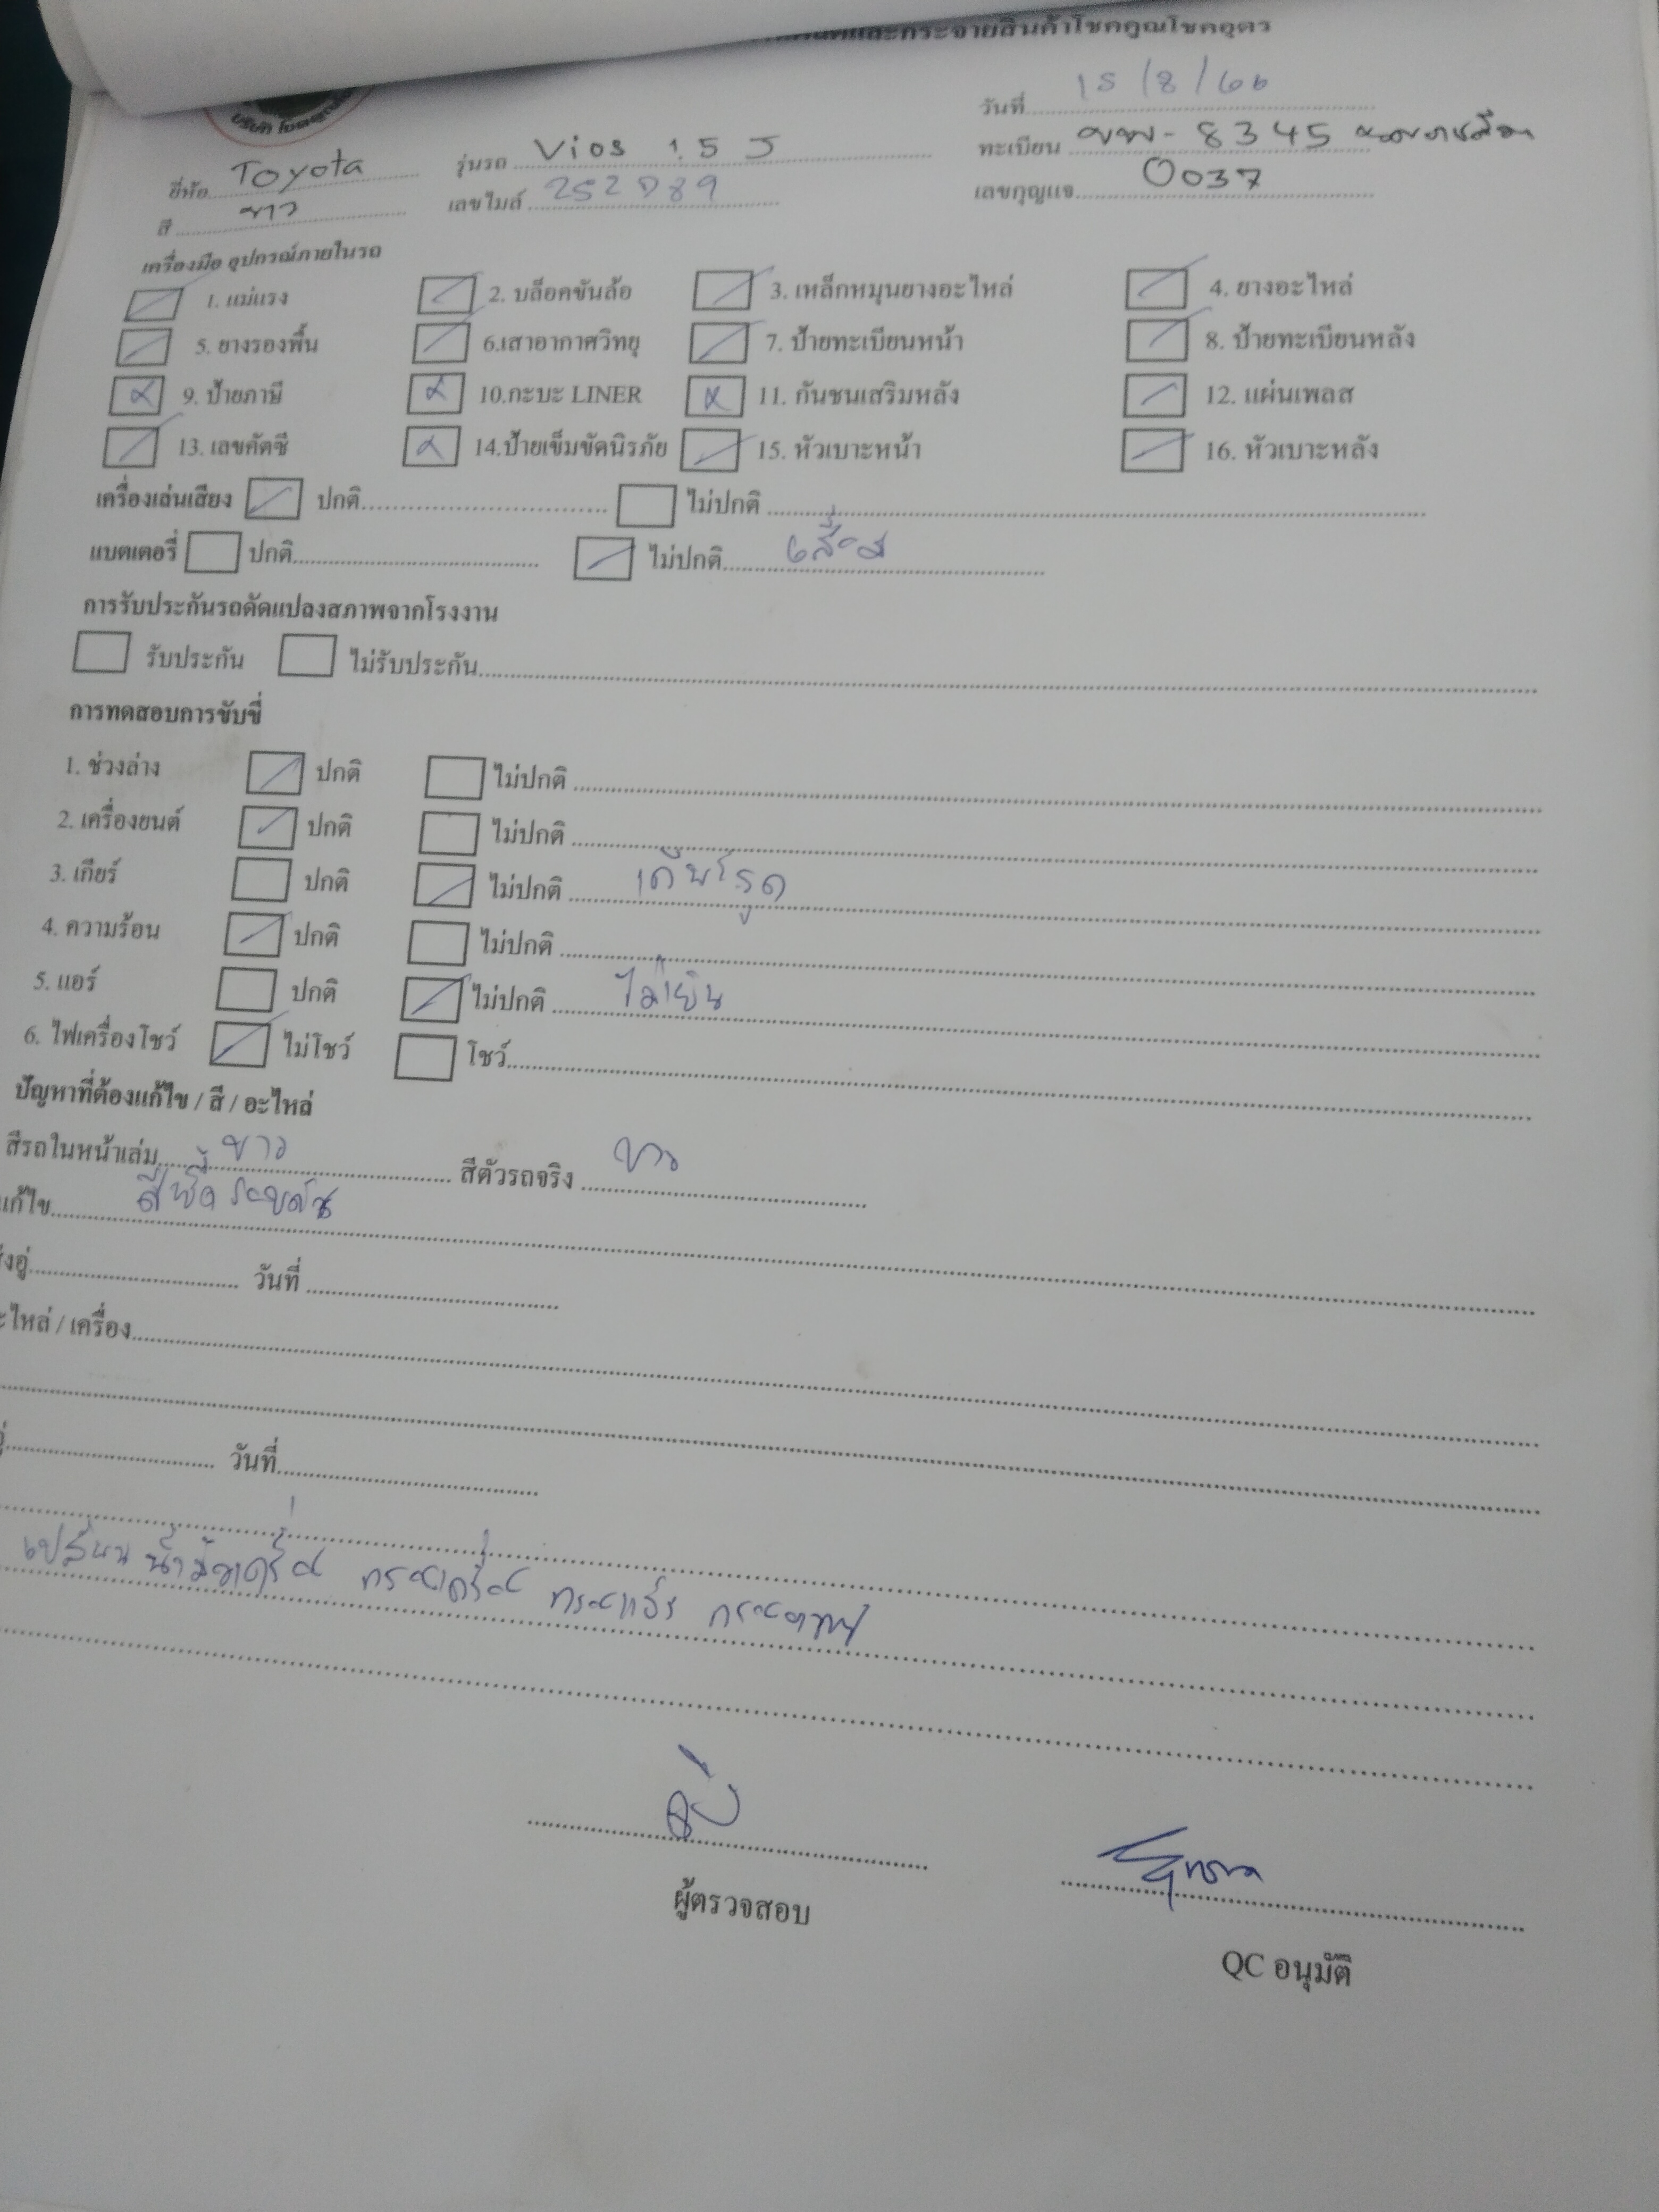 และกระจายสินค้าโชคคูณโชคอุดร
วันที่ 15/8/66
ยี่ห้อ Toyota รุ่นรถ Vios 1.5 J ทะเบียน ขพ-8345 นครราชสีมา
สี ขาว เลขไมล์ เลขกุญแจ 0037
เครื่องมือ อุปกรณ์ภายในรถ
1. แม่แรง 2. บล็อคขันล้อ 3. เหล็กหมุนยางอะไหล่ 4. ยางอะไหล่
5. ยางรองพื้น 6.เสาอากาศวิทยุ 7. ป้ายทะเบียนหน้า 8. ป้ายทะเบียนหลัง
9. ป้ายภาษี 10.กะบะ LINER 11. กันชนเสริมหลัง 12. แผ่นเพลส
13. เลขคัตซี 14.ป้ายเข็มขัดนิรภัย 15. หัวเบาะหน้า 16. หัวเบาะหลัง
เครื่องเล่นเสียง ปกติ ไม่ปกติ
แบตเตอรี่ ปกติ ไม่ปกติ เสื่อม
การรับประกันรถดัดแปลงสภาพจากโรงงาน
รับประกัน ไม่รับประกัน
การทดสอบการขับขี่
1. ช่วงล่าง ปกติ ไม่ปกติ
2. เครื่องยนต์ ปกติ ไม่ปกติ
3. เกียร์ ปกติ ไม่ปกติ
4. ความร้อน ปกติ ไม่ปกติ
5. แอร์ ปกติ ไม่ปกติ ไม่เย็น
6. ไฟเครื่องโชว์ ไม่โชว์ โชว์
ปัญหาที่ต้องแก้ไข / สี / อะไหล่
สีรถในหน้าเล่ม ขาว สีตัวรถจริง ขาว
แก้ไข
วันที่
ะไหล่ / เครื่อง
วันที่
เปลี่ยน
ผู้ตรวจสอบ
QC อนุมัติ